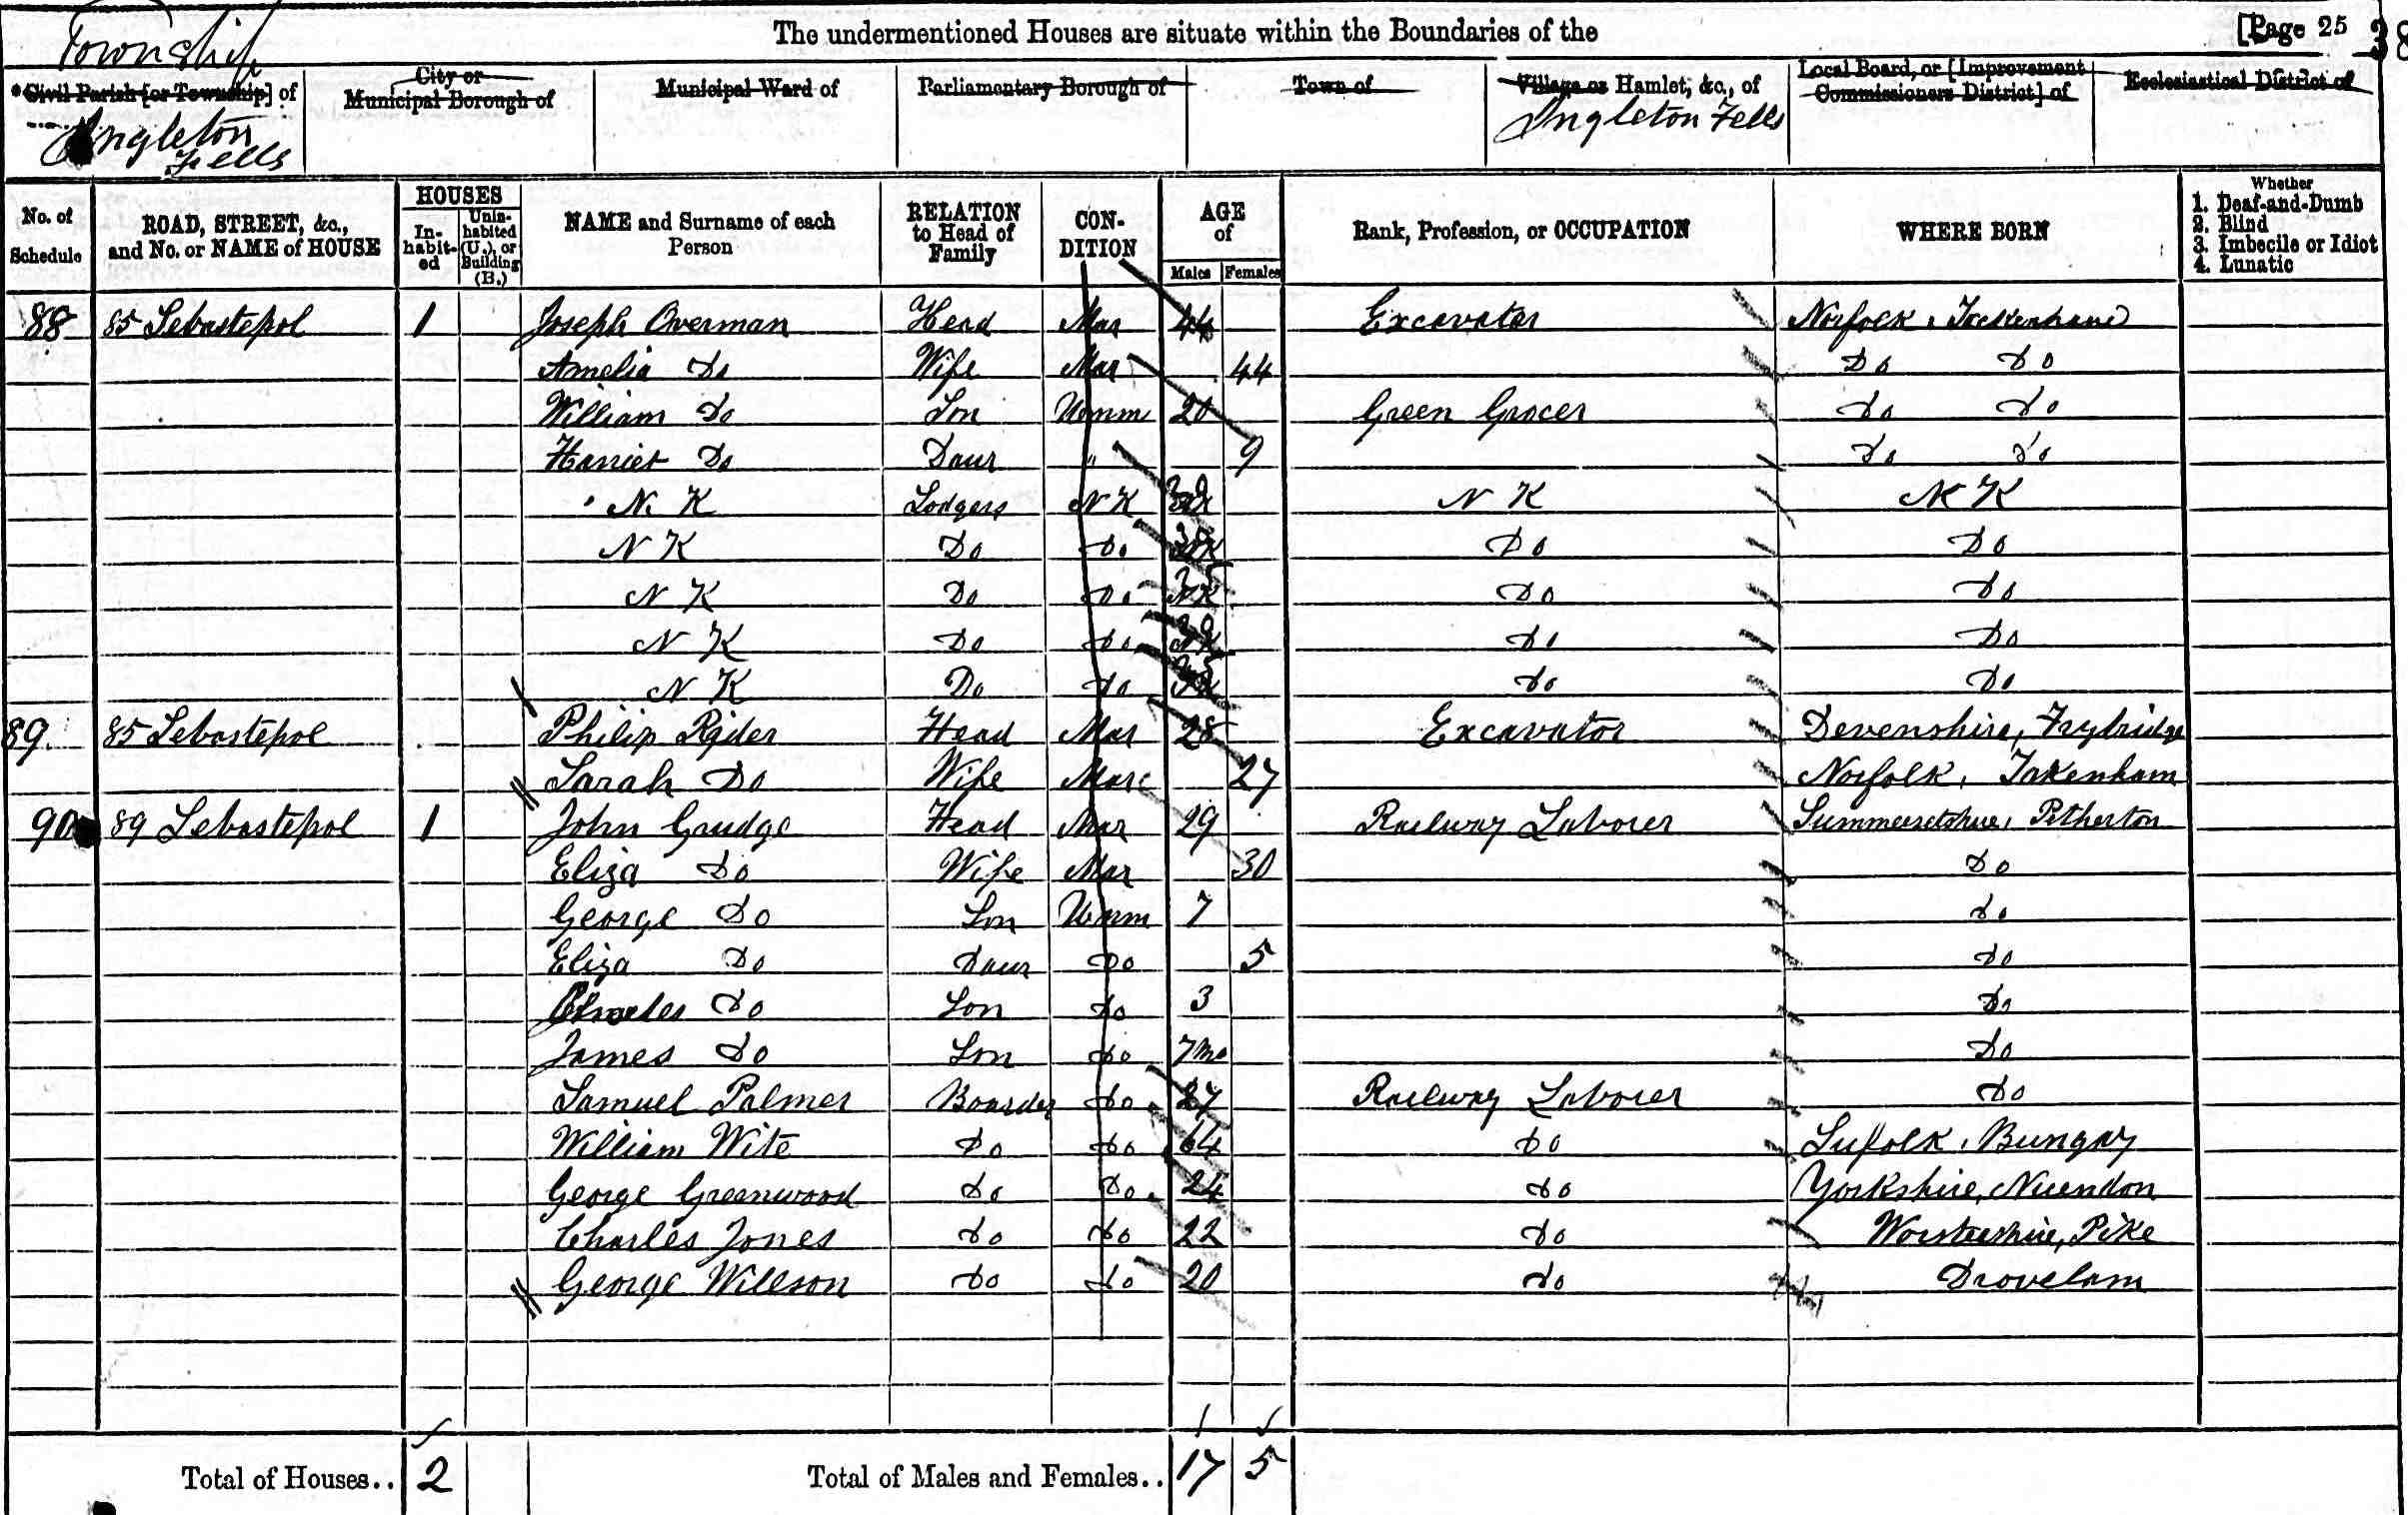 The undermentioned Houses are situate within the Boundaries of the [Page 25 38
Township
*Civil Parish [or Township] of City or Municipal Borough of Municipal Ward of Parliamentary Borough of Town of Village or Hamlet, &c., of Local Board, or [Improvement Commissioners District] of Ecclesiastical District of
Ingleton Fells Ingleton Fells
No. of Schedule ROAD, STREET, &c., and No. or NAME of HOUSE HOUSES Inhabited Uninhabited (U.), or Building (B.) NAME and Surname of each Person RELATION to Head of Family CONDITION AGE of Males Females Rank, Profession, or OCCUPATION WHERE BORN Whether 1. Deaf-and-Dumb 2. Blind 3. Imbecile or Idiot 4. Lunatic
88 85 Sebastepol 1 Joseph Overman Head Mar 44 Excavator Norfolk,
Amelia Do Wife Mar 44 Do Do
William Do Son Unm 20 Green Grocer Do Do
Harriet Do Daur " 9 Do Do
N. K Lodgers N K 30 N K N K
N K Do Do 30 Do Do
N K Do Do 35 NK Do Do
N K Do Do 30 Do Do
N K Do Do 35 Do Do
89. 85 Sebastepol Philip Rider Head Mar 28 Excavator Devenshire,
Sarah Do Wife Mar 27 Norfolk, Takenham
90 89 Sebastepol 1 John Grudge Head Mar 29 Railway Laborer Petherton
Eliza Do Wife Mar 30 Do
George Do Son Unm 7 Do
Eliza Do Daur Do 5 Do
Charles Do Son Do 3 Do
James Do Son Do 7 mo Do
Samuel Palmer Boarder Do 27 Railway Laborer Do
William Wite Do Do 64 Do Sufolk, Bungay
George Greenwood Do Do 24 Do Yorkshire,
Charles Jones Do Do 22 Do Pike
George Willson Do Do 20 Do
Total of Houses.. 2 Total of Males and Females.. 17 5